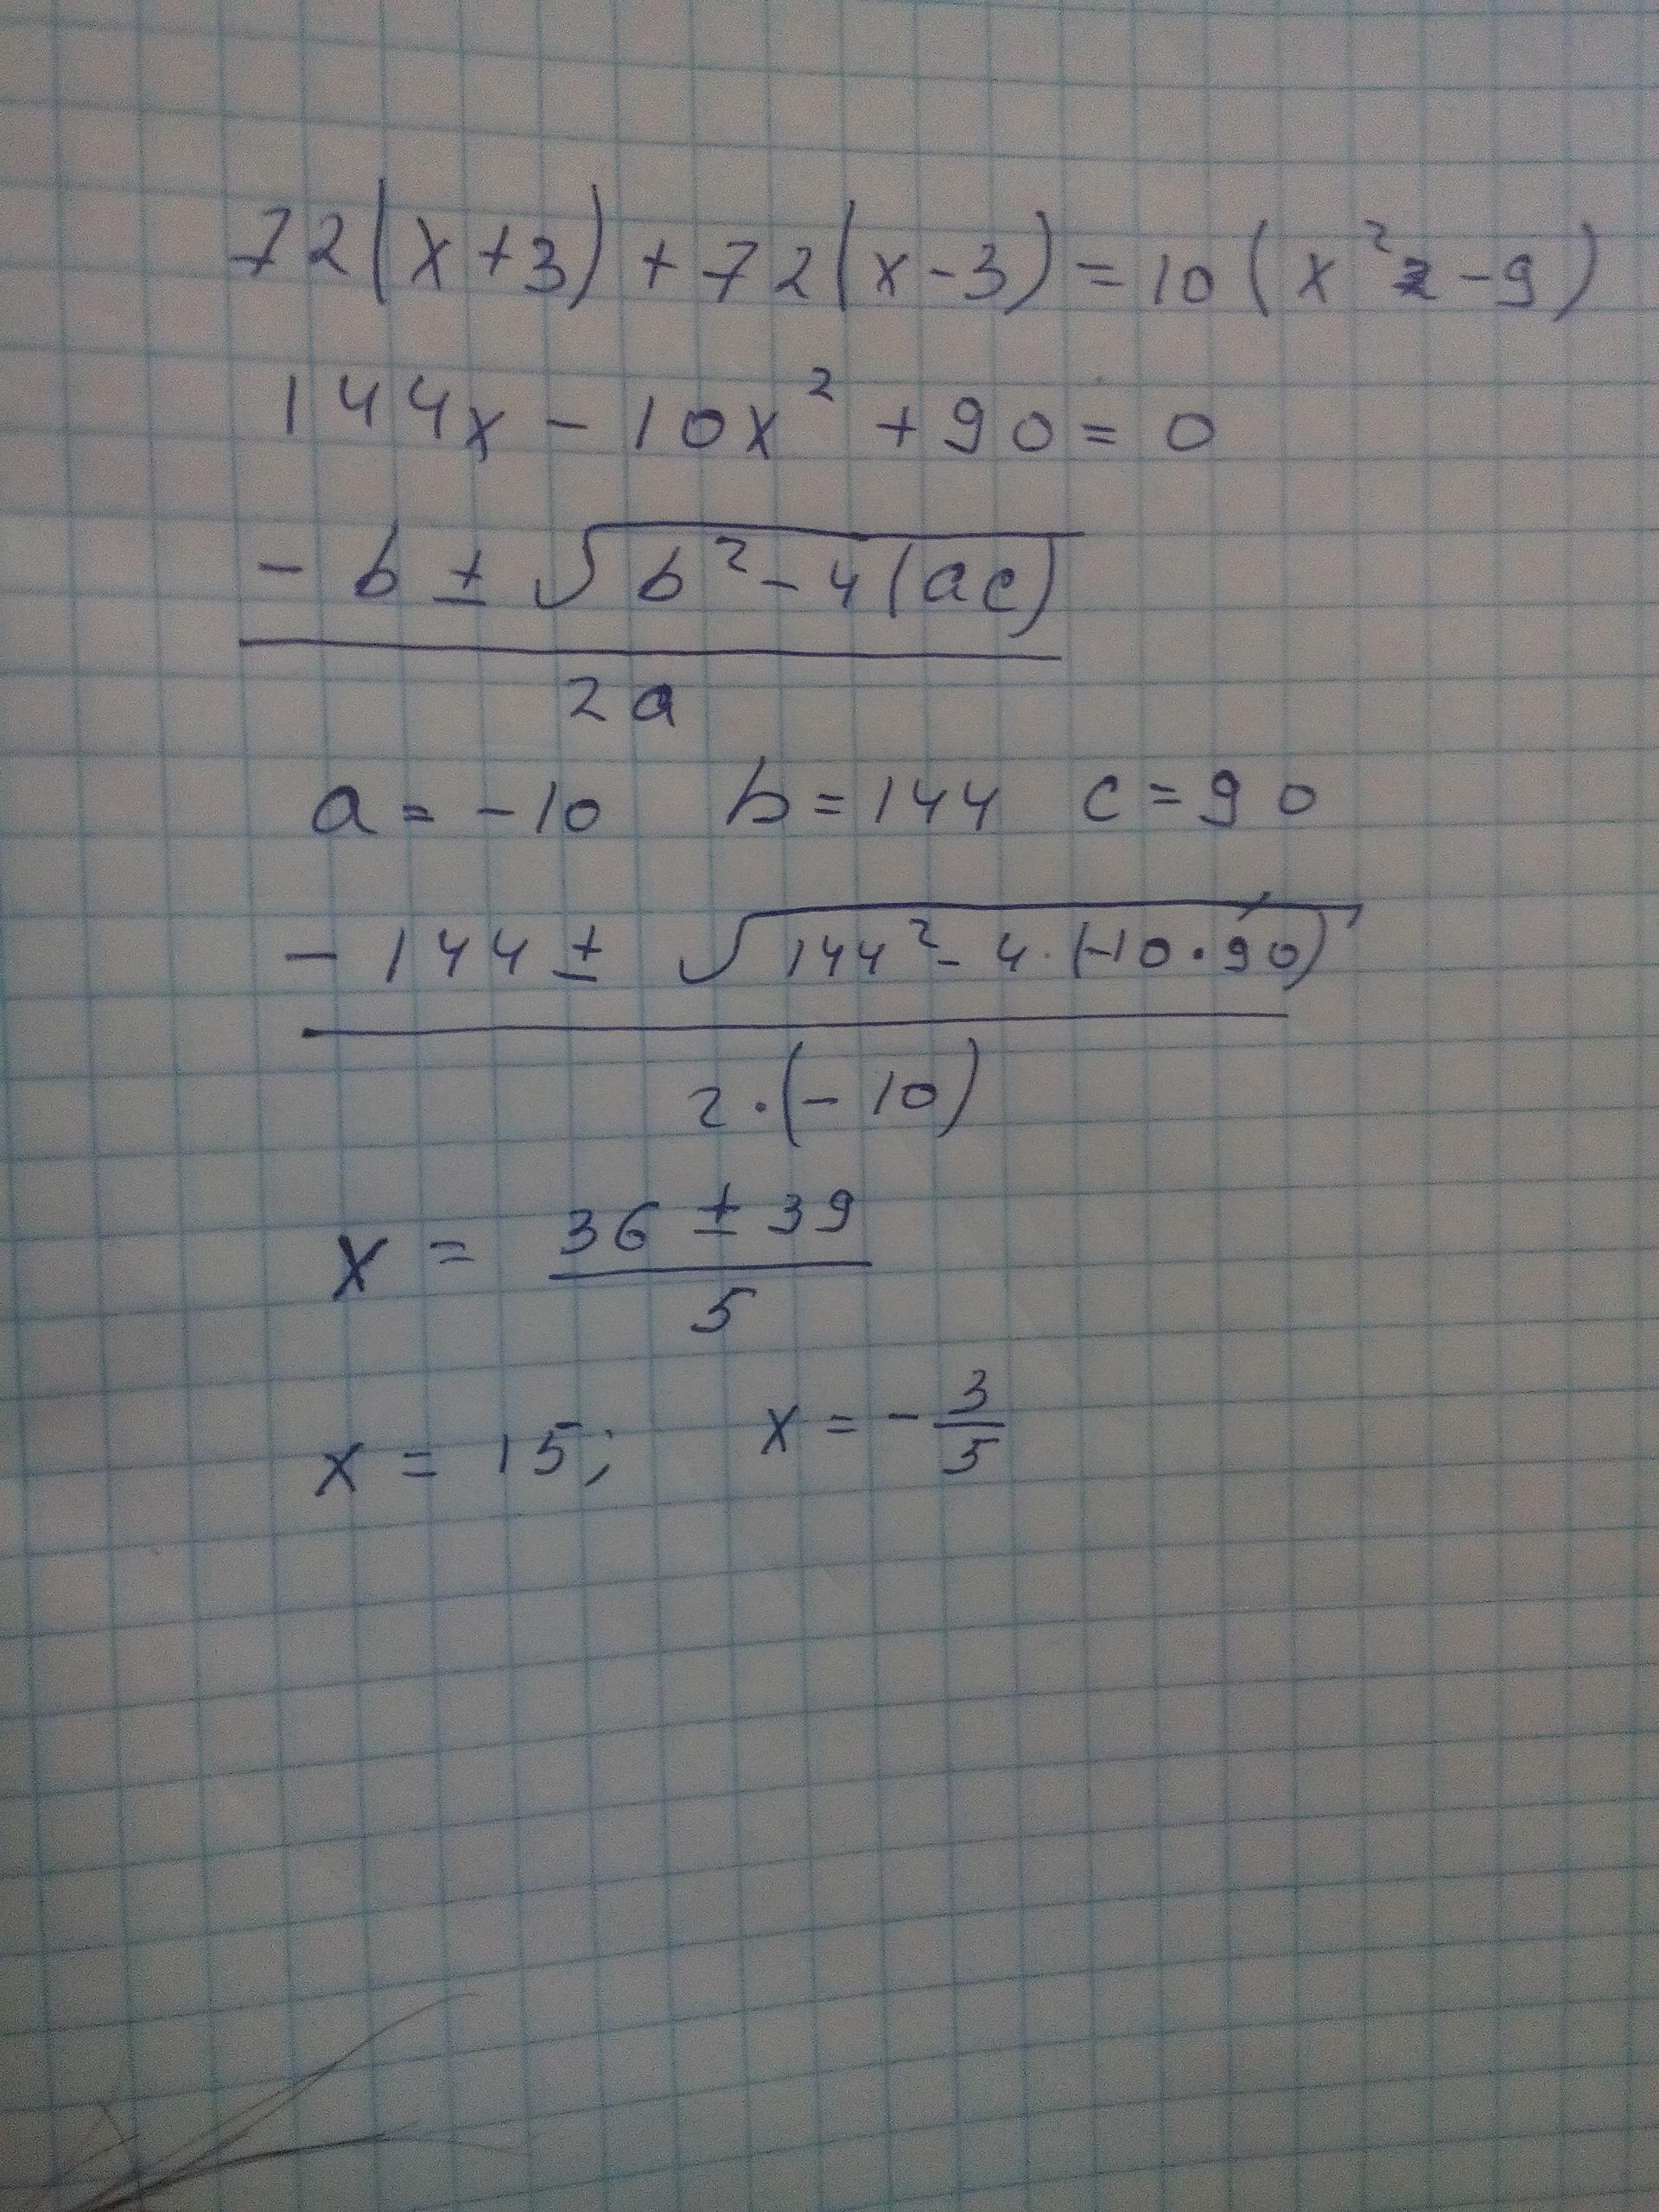 72(x+3)+72(x-3)=10(x²-9)
144x-10x²+90=0
-b±√b²-4(ac)
2a
a=-10 b=144 c=90
-144±√144²-4·(-10·90)
2·(-10)
x = 36±39
5
x = 15; x = -3/5